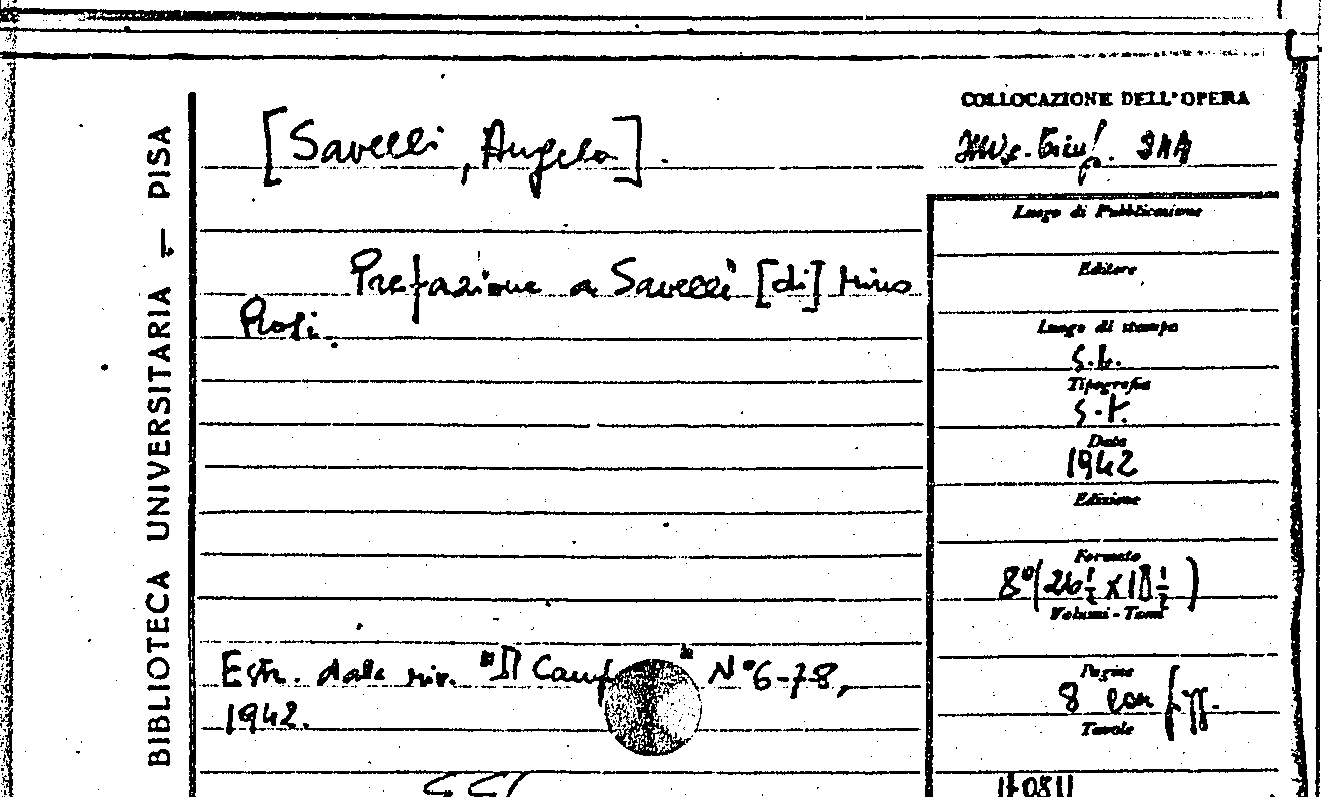 BIBLIOTECA UNIVERSITARIA — PISA
[Savelli, Angelo].
Prefazione a Savelli [di] Mino
Rosi.
Estr. dalla riv. "Il N° 6-7-8,
1942.
COLLOCAZIONE DELL'OPERA
Luogo di Pubblicazione
Editore
Luogo di stampa
s.l.
Tipografia
s.t.
Data
1942
Edizione
Formato
8° (26 1/2 x 18 1/2)
Volumi - Tomi
Pagine
8 con figg.
Tavole